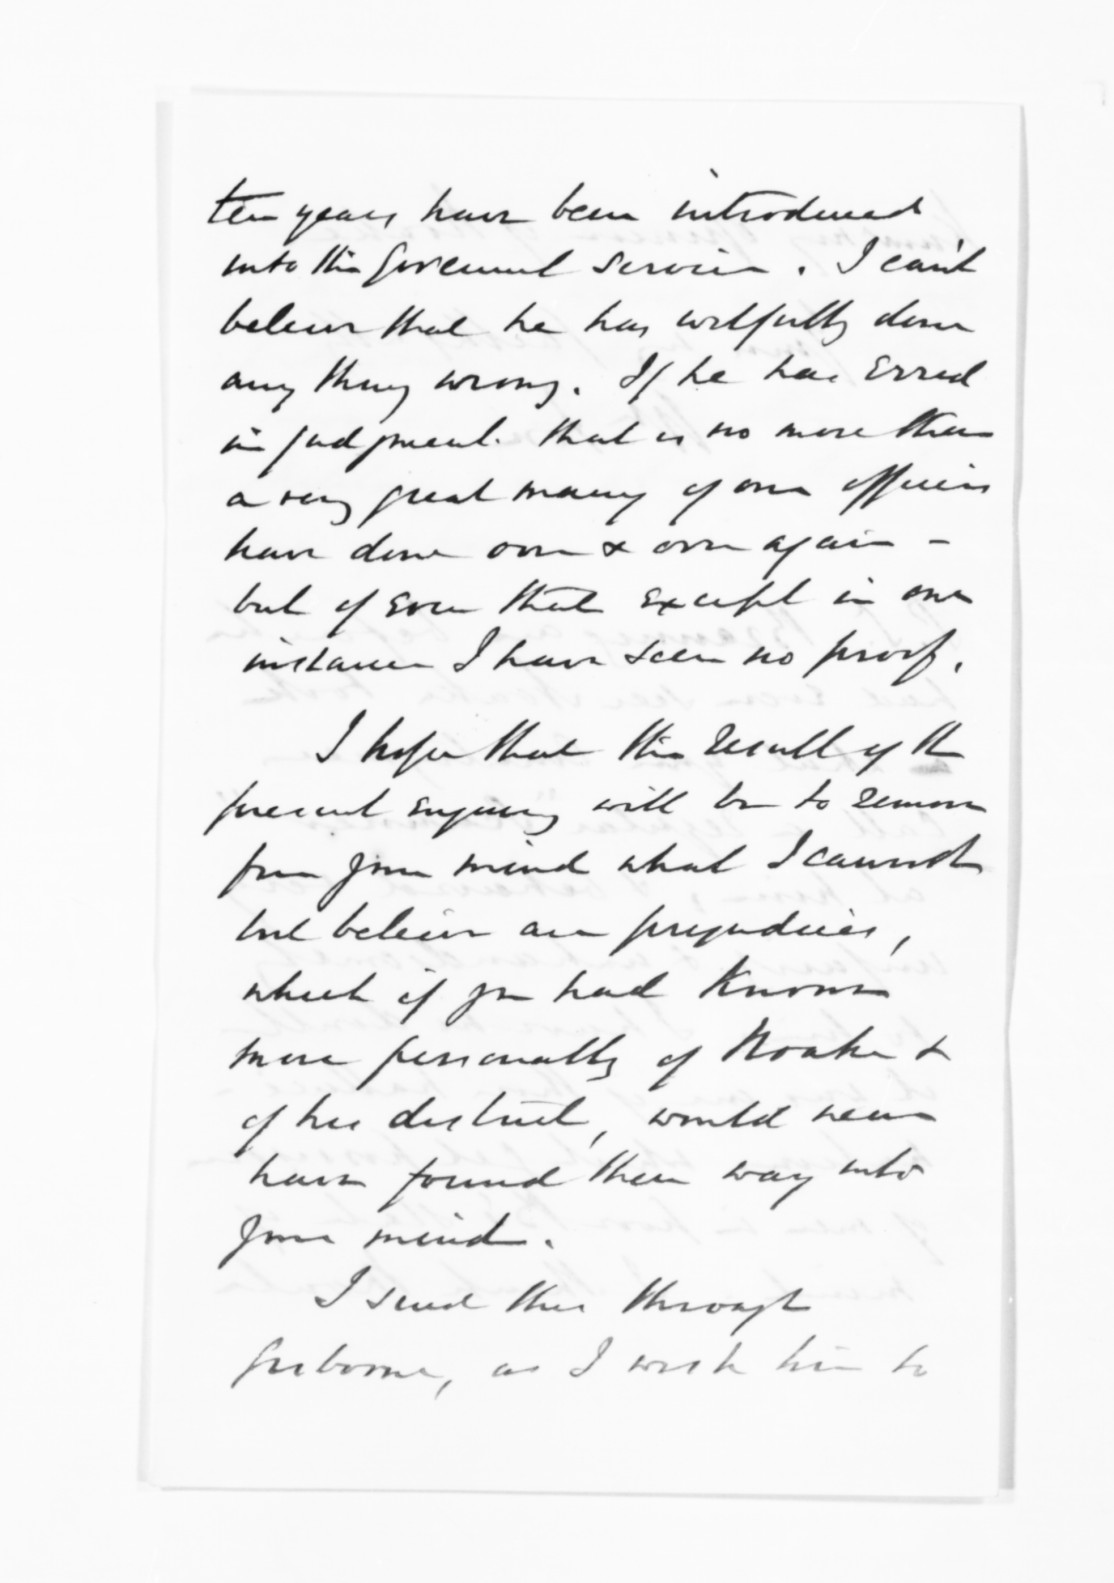 ten years have been introduced
into the Government service. I can't
believe that he has wilfully done
any thing wrong. If he has erred
in judgment. that is no more than
a very great many of our officers
have done over & over again -
but of even that except in one
instance I have seen no proof.
I hope that the result of the
present enquiry will be to remove
from your mind what I cannot
but believe are prejudices,
which if you had known
more personally of Noake &
of his district, would never
have found their way into
your mind.
I send this through
Gisborne, as I wish him to